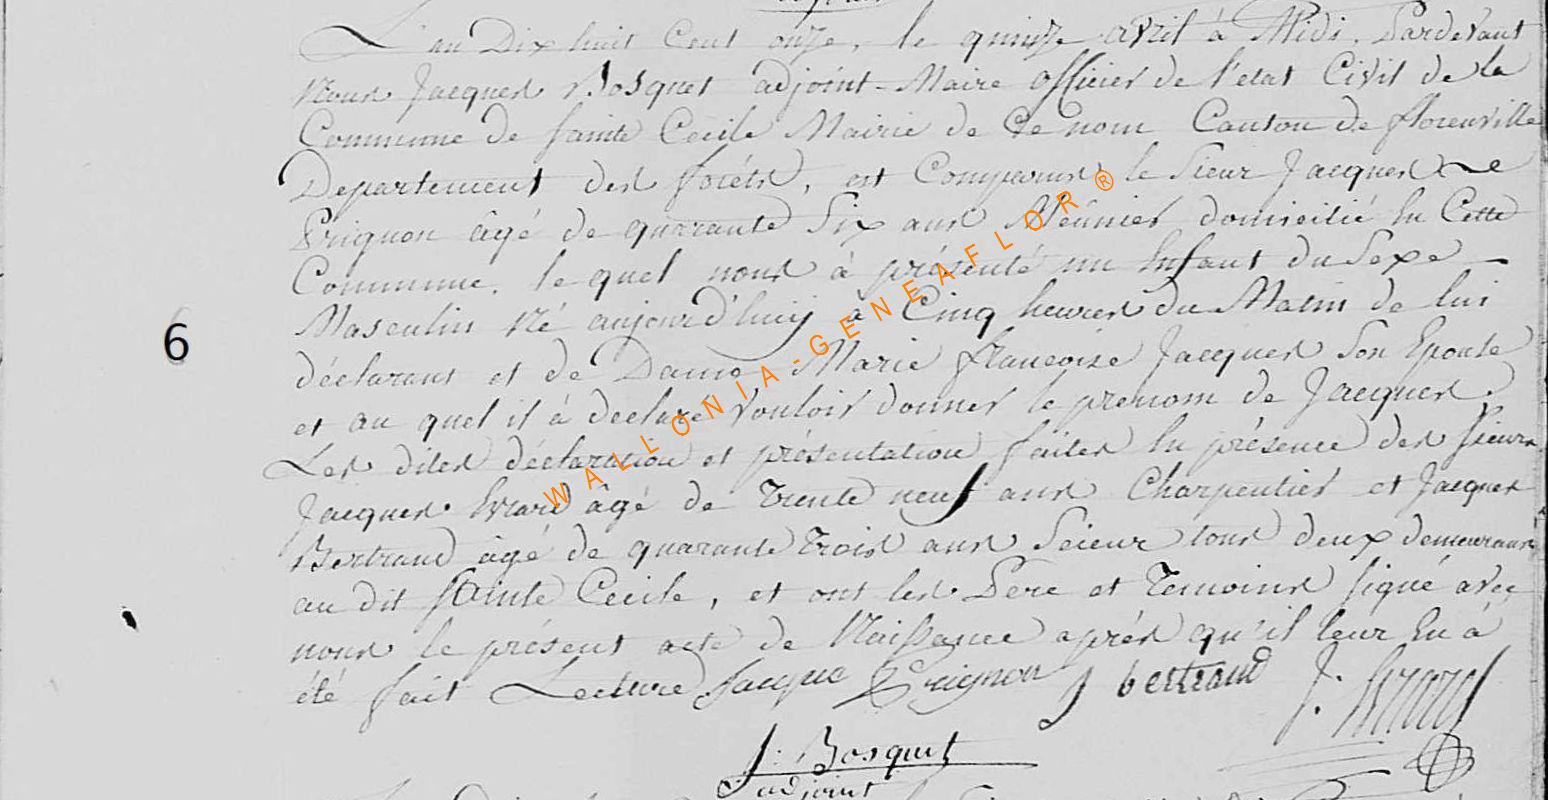 L'an Dix huit Cent onze, le quinze avril à Midi. Pardevant
Nous Jacques Bosquet adjoint-Maire officier de l'état Civil de la
Commune de Sainte Cécile Mairie de Ce nom Canton de florenville
Departement des foréts, est Comparus le Sieur Jacques
Prignon âgé de quarante Six ans Meûnier domicilié En Cette
Commune, le quel nous à présenté un Enfant du Sexe
Masculin Né aujourd'huy à Cinq heures du Matin de lui
déclarant et de Dame Marie françoise Jacques Son Epouse
et au quel il à declaré Vouloir donner le prenom de Jacques.
Les dites déclaration et présentation faites En présence des Sieurs
Jacques Evrard âgé de Trente neuf ans Charpentier et Jacques
Bertrand âgé de quarante Trois ans Scieur tous deux demeurans
au dit Sainte Cecile, et ont les Pere et Temoins signé avec
nous le présent acte de Naissance après qu'il leur En à
été fait Lecture Jacque Prignon J bertrand J: Evrard
J: Bosquet
adjoint
6
WALLONIA-GENEAFLOR®